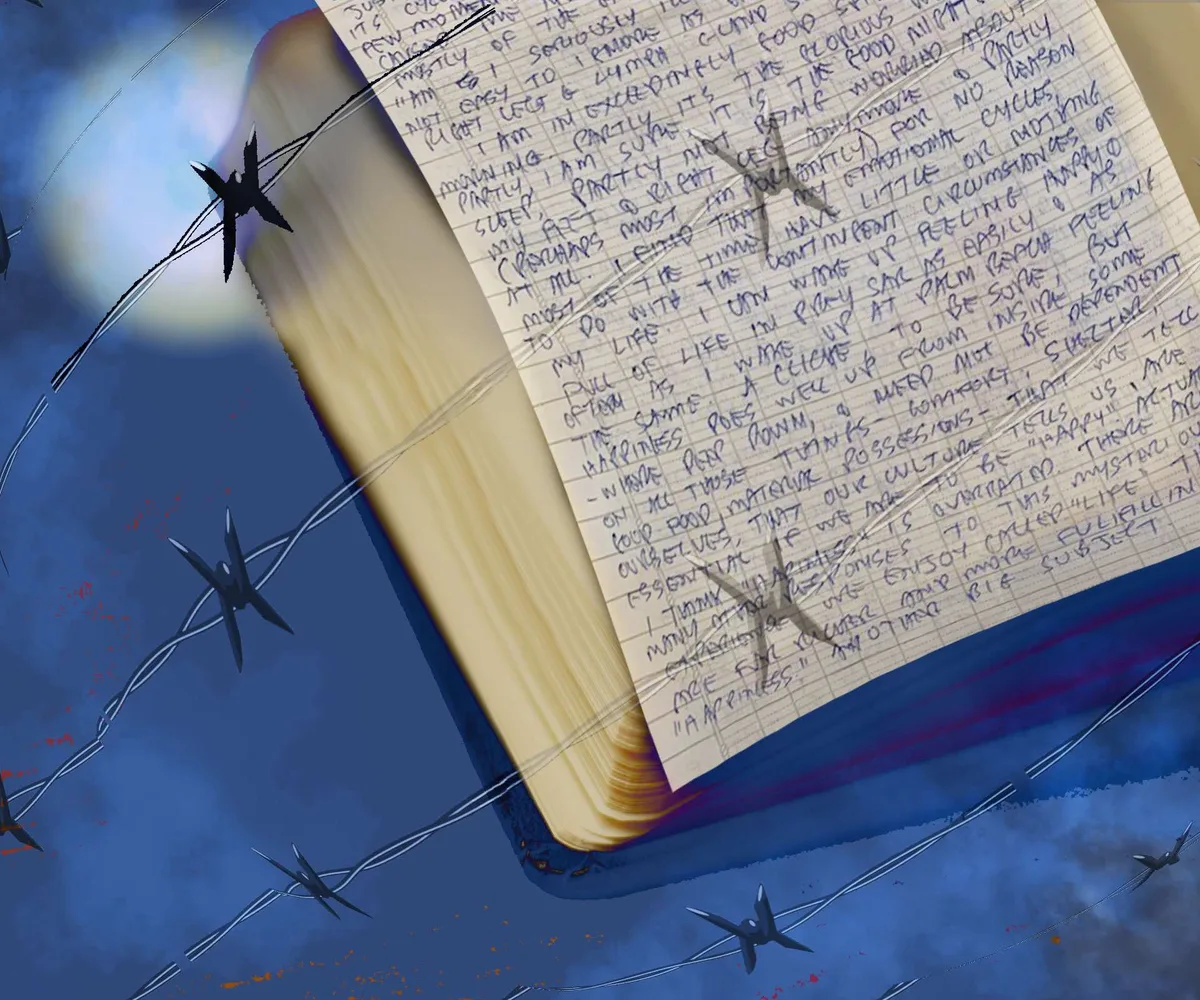 IT'S
FEW
MOSTLY OF THE
"AM SO I SERIOUSLY
NOT EASY TO IGNORE AS
RIGHT LEG & LYMPH GLAND
I AM IN EXCEEDINGLY GOOD
MORNING. PARTLY IT'S THE GLORIOUS
PARTLY, I AM SURE IT IS THE GOOD NIGHT
SLEEP, PARTLY NOT BEING WORRIED ABOUT
MY FEET & RIGHT LEG ANYMORE & PARTLY
(PERHAPS MOST IMPORTANTLY) FOR NO REASON
AT ALL. I FIND THAT MY EMOTIONAL CYCLES
MOST OF THE TIME HAVE LITTLE OR NOTHING
TO DO WITH THE CONTINGENT CIRCUMSTANCES OF
MY LIFE. I CAN WAKE UP FEELING HAPPY &
FULL OF LIFE IN AS EASILY & AS
OFTEN AS I WAKE UP AT PALM BEACH FEELING
THE SAME. A CLICHE TO BE SURE, BUT
HAPPINESS DOES WELL UP FROM INSIDE, SOME
-WHERE DEEP DOWN, & NEED NOT BE DEPENDENT
ON ALL THOSE THINGS - COMFORT, SHELTER,
GOOD FOOD MATERIAL POSSESSIONS - THAT WE TELL
OURSELVES, THAT OUR CULTURE TELLS US, ARE
ESSENTIAL IF WE ARE TO BE "HAPPY".
I THINK "HAPPINESS" IS OVERRATED THERE ARE
MANY OTHER RESPONSES TO THIS MYSTERIOUS
EXPERIENCE WE ENJOY CALLED "LIFE"
ARE FAR RICHER AND MORE
"HAPPINESS." ANOTHER BIG SUBJECT